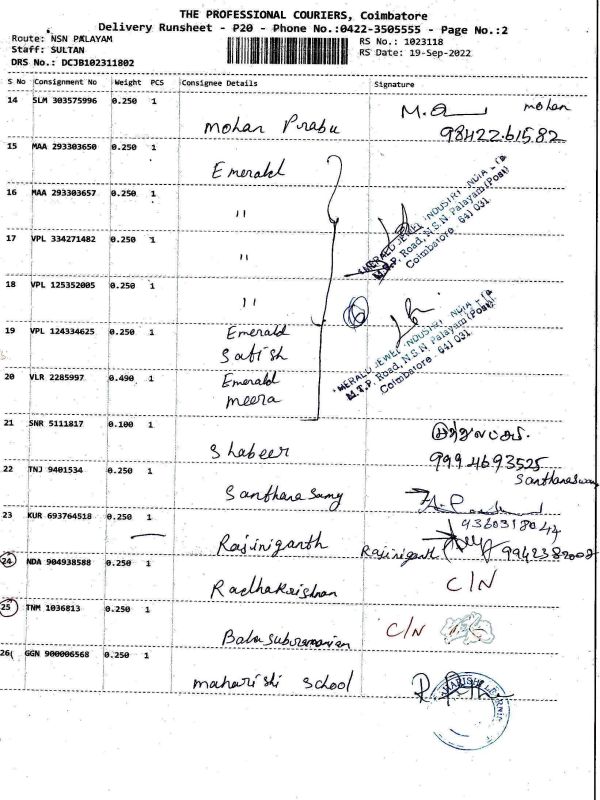 THE PROFESSIONAL COURIERS, Coimbatore
Delivery Runsheet - P20 - Phone No.:0422-3505555 - Page No.:2
Route: NSN PALAYAM
Staff: SULTAN
DRS No.: DCJB102311802
RS No.: 1023118
RS Date: 19-Sep-2022
S No Consignment No Weight PCS Consignee Details Signature
14 SLM 303575996 0.250 1 Mohan Prabu mohan
98422.61582
15 MAA 293303650 0.250 1 Emerald
16 MAA 293303657 0.250 1 "
EMERALD JEWEL INDUSTRY INDIA LTD
M.T.P. Road, N.S.N. Palayam (Post)
Coimbatore - 641 031.
17 VPL 334271482 0.250 1 "
18 VPL 125352005 0.250 1 "
19 VPL 124334625 0.250 1 Emerald
Satish
EMERALD JEWEL INDUSTRY INDIA LTD
M.T.P. Road, N.S.N. Palayam (Post)
Coimbatore - 641 031.
20 VLR 2285997 0.490 1 Emerald
meera
21 SNR 5111817 0.100 1 Shabeer
9994693525
22 TNJ 9401534 0.250 1 Santhana Samy
Santhanaswamy
9360318044
23 KUR 693764518 0.250 1 Rajiniganth Rajiniganth 9942382008
24 NDA 904938588 0.250 1 Radhakrishnan C/N
25 TNM 1036813 0.250 1 Balasubramanian C/N
26 GGN 900006568 0.250 1 maharishi School